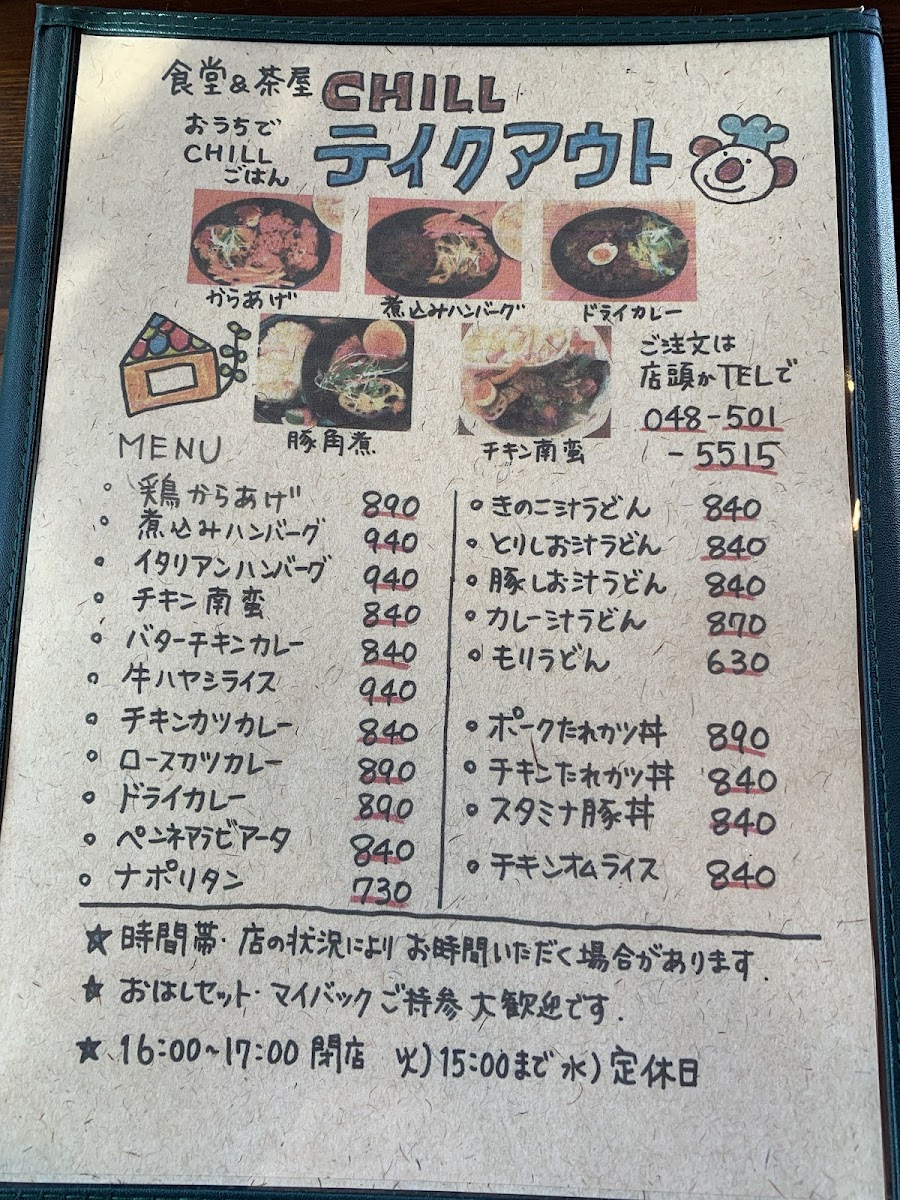 食堂&茶屋 CHILL
おうちで
CHILL
ごはん
テイクアウト
からあげ
煮込みハンバーグ
ドライカレー
豚角煮
チキン南蛮
ご注文は
店頭かTELで
048-501
-5515
MENU
。鶏からあげ 890
。煮込みハンバーグ 940
。イタリアンハンバーグ 940
。チキン南蛮 840
。バターチキンカレー 840
。牛ハヤシライス 940
。チキンカツカレー 840
。ロースカツカレー 890
。ドライカレー 890
。ペンネアラビアータ 840
。ナポリタン 730
。きのこ汁うどん 840
。とりしお汁うどん 840
。豚しお汁うどん 840
。カレー汁うどん 870
。もりうどん 630
。ポークたれカツ丼 890
。チキンたれカツ丼 840
。スタミナ豚丼 840
。チキンオムライス 840
★時間帯・店の状況によりお時間いただく場合があります.
★おはしセット・マイバックご持参大歓迎です.
★16:00~17:00 閉店 火)15:00まで 水)定休日